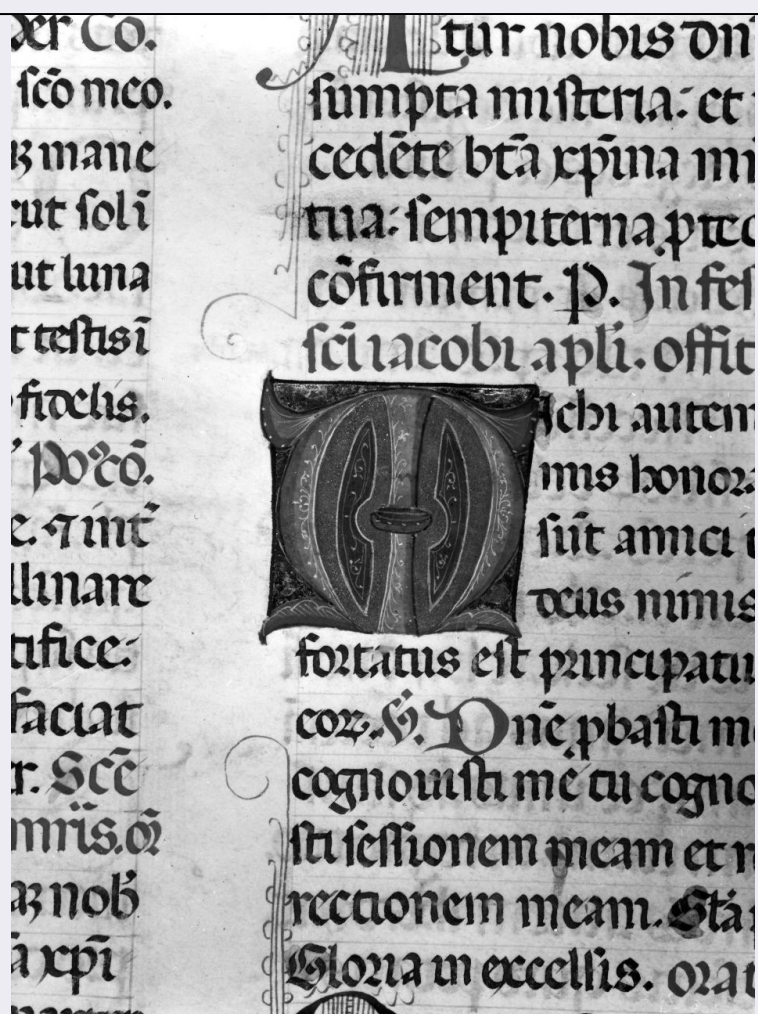 der Co.
sc̄o meo.
ꝫ mane
cut solī
ut luna
t testis ī
fidelis.
Po᷒cō.
e. ⁊ int̄
llinare
tifice:
faciat
r. Sc̄e
mr̄is. or̄
aꝫ nob̄
ā xp̄i
tur nobis dn̄
sumpta misteria: et
cedēte bt̄a xp̄ina mi
tua: sempiterna ꝓtec
cōfirment. P. In fes
sc̄i iacobi apl̄i. offit
Michi autem
mis honora
sūt amici
deus nimis
fortatus est principatu
coꝝ. V̄. Dn̄e ꝓbasti me
cognouisti me tu cogno
sti sessionem meam et r
rectionem meam. Gl̄a
Gloria in excelsis. orat